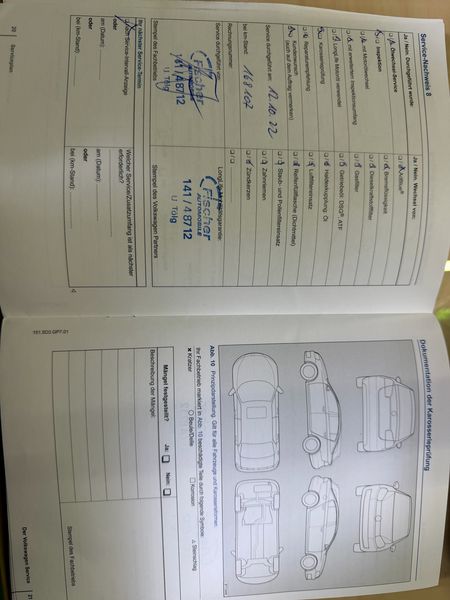 Service-Nachweis 8
Ja / Nein. Durchgeführt wurde:
Ja / Nein. Wechsel von:
Ölwechsel-Service
AdBlue®
Inspektion
Bremsflüssigkeit
mit Motorölwechsel
Dieselkraftstofffilter
mit erweitertem Inspektionsumfang
Gasfilter
LongLife Motoröl verwendet
Getriebeöl: DSG®, ATF
Karosserieprüfung
Haldexkupplung: Öl
Reparaturempfehlung
Luftfiltereinsatz
Kundenwunsch
(auch auf dem Auftrag vermerken)
Reifenfüllflasche (Dichtmittel)
Staub- und Pollenfiltereinsatz
Service durchgeführt am: 12.10.22
Zahnriemen
bei km-Stand: 168102
Zündkerzen
Rechnungsnummer:
Service durchgeführt von:
Fischer
141/48712
U. Tölg
Stempel des Fachbetriebs
Fischer
AUTOMOBILE
141/48712
U. Tölg
Stempel des Volkswagen Partners
Ihr nächster Service-Termin
Welcher Service/Zusatzumfang ist als nächster
erforderlich?
Service-Intervall-Anzeige
oder
am (Datum):
am (Datum):
oder
oder
bei (km-Stand):
bei (km-Stand):
20
Serviceplan
Dokumentation der Karosserieprüfung
Abb. 10 Prinzipdarstellung. Gilt für alle Fahrzeuge und Karosserieformen.
Ihr Fachbetrieb markiert in Abb. 10 beschädigte Teile durch folgende Symbole:
Kratzer
Beule/Delle
Korrosion
Steinschlag
Mängel festgestellt?
Ja:
Nein:
Beschreibung der Mängel:
Stempel des Fachbetriebs
Der Volkswagen Service
21